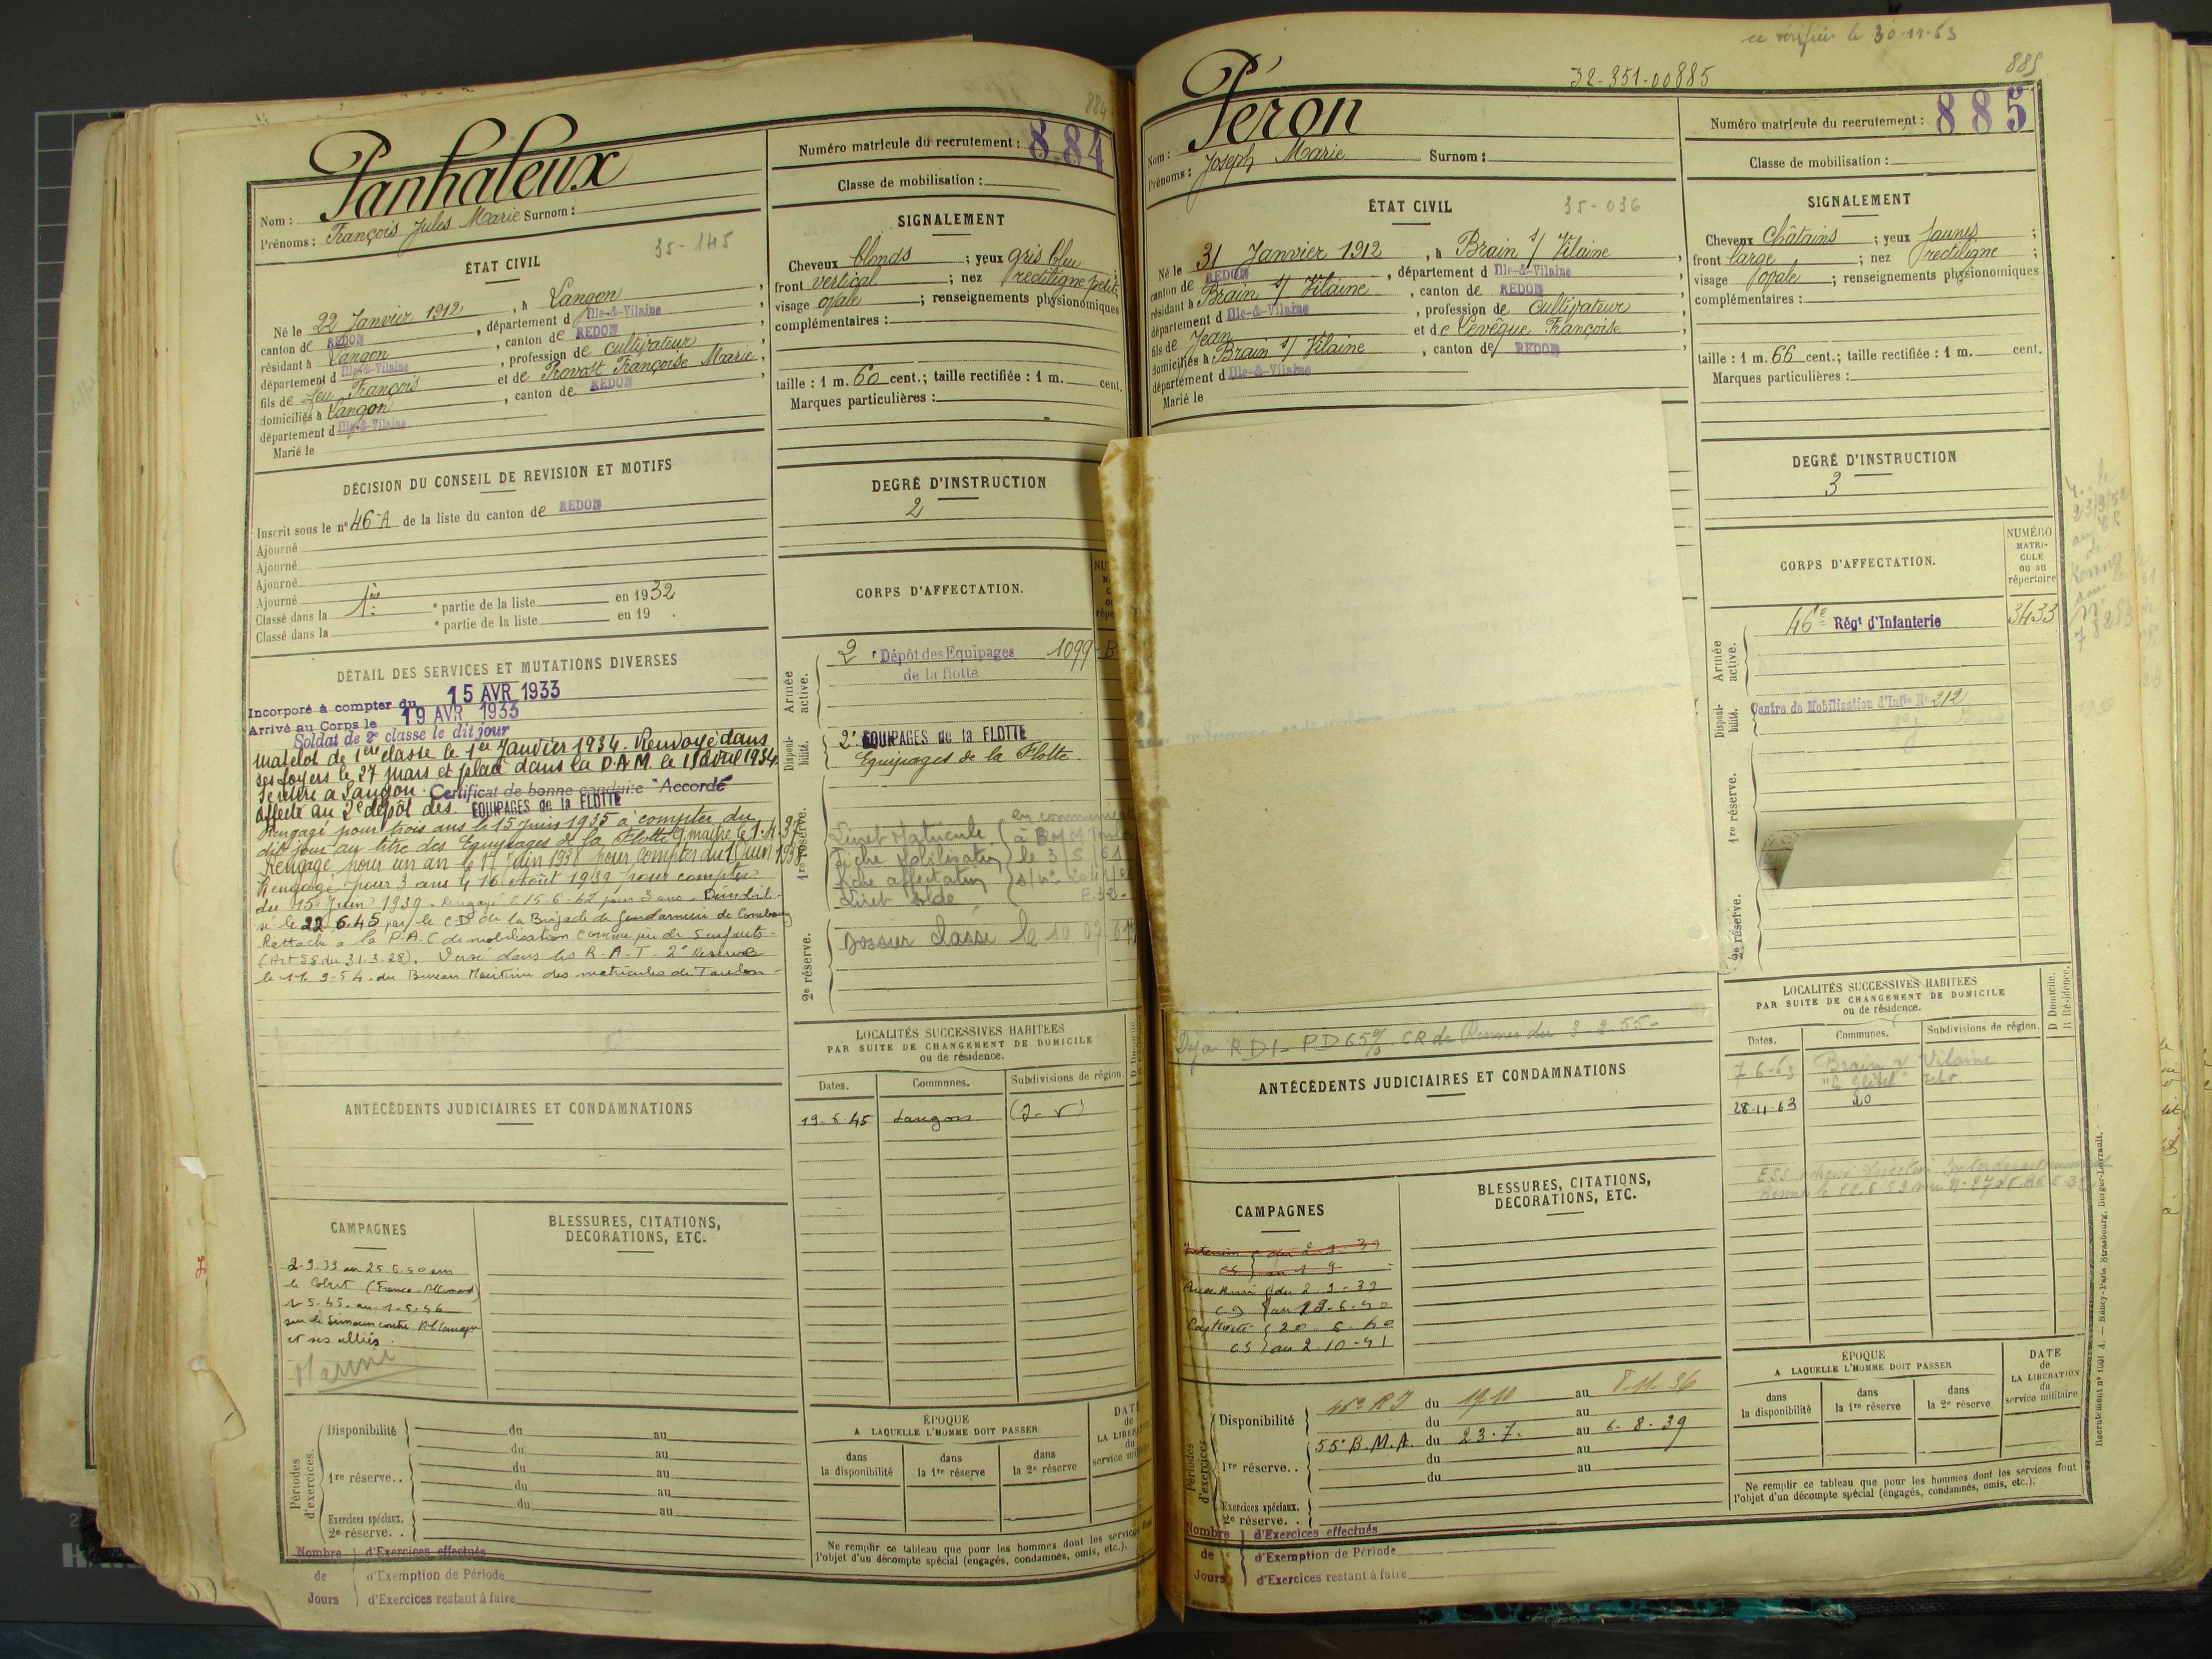 884
Panhaleux
Nom :
Prénoms : François Jules Marie Surnom :
Numéro matricule du recrutement : 884
Classe de mobilisation :
ÉTAT CIVIL
35-145
Né le 22 Janvier 1912, à Langon,
canton de REDON, département d Ille-&-Vilaine
résidant à Langon, canton de REDON,
département d Ille-&-Vilaine, profession de cultivateur,
fils de feu François et de Provost Françoise Marie,
domiciliés à Langon, canton de REDON,
département d Ille-&-Vilaine
Marié le
SIGNALEMENT
Cheveux blonds ; yeux gris bleu ;
front vertical ; nez rectiligne petit ;
visage ovale ; renseignements physionomiques
complémentaires :
taille : 1 m. 60 cent. ; taille rectifiée : 1 m. cent.
Marques particulières :
DÉCISION DU CONSEIL DE REVISION ET MOTIFS
Inscrit sous le n° 46-A de la liste du canton de REDON
Ajourné
Ajourné
Ajourné
Ajourné
Classé dans la 1ère e partie de la liste en 1932
Classé dans la e partie de la liste en 19 .
DEGRÉ D'INSTRUCTION
2
DÉTAIL DES SERVICES ET MUTATIONS DIVERSES
Incorporé à compter du 15 AVR 1933
Arrivé au Corps le 19 AVR 1933
Soldat de 2e classe le dit jour
Matelot de 1ère classe le 1er Janvier 1934. Renvoyé dans
ses foyers le 27 mars et placé dans la D.A.M. le 15 avril 1934.
Se retire à Langon. Certificat de bonne conduite "Accordé"
Affecté au 2e dépôt des EQUIPAGES de la FLOTTE
Rengagé pour trois ans le 15 Juin 1935 à compter du
dit jour au titre des Equipages de la Flotte. maître le 1.4.37
Rengagé pour un an le Juin 1938 pour compter du Juin 1938
Rengagé pour 3 ans le 16 Août 1939 pour compter
du 15 Juin 1939. Rengagé le 15-6-42 pour 3 ans. Démobili-
sé le 22.6.45 par le CD de la Brigade de Gendarmerie de Combourg
Rattaché à la P.A.C de mobilisation comme père de 5 enfants
(Art 58 du 31.3.28). Versé dans les R.A.T. 2e Réserve
le 11.9.54. du Bureau Maritime des matricules de Toulon
CORPS D'AFFECTATION.
Armée active.
2e Dépôt des Equipages 1099-B
de la flotte
Disponibilité.
2e EQUIPAGES de la FLOTTE
Equipages de la Flotte.
1re réserve.
Livret Matricule
en communicat
à BMM Toulon
Fiche Mobilisation le 3/5/61
fiche affectation
Livret solde
2e réserve.
Dossier classé le 10 07 61
LOCALITÉS SUCCESSIVES HABITEES
PAR SUITE DE CHANGEMENT DE DOMICILE
ou de résidence.
Dates. Communes. Subdivisions de région.
19-6-45 Langon (I-V)
ANTÉCÉDENTS JUDICIAIRES ET CONDAMNATIONS
CAMPAGNES
2-9-39 au 25.6.40 sur
le Colbert (Franco-Allemand)
1-5-45 au 1-5-46
sur le Simoun contre Allemagne
et ses alliés.
Marine
BLESSURES, CITATIONS,
DÉCORATIONS, ETC.
Périodes d'exercices.
Disponibilité du au
du au
1re réserve.. du au
du au
du au
Exercices spéciaux.
2e réserve. .
Nombre de Jours
d'Exercices effectués
d'Exemption de Période
d'Exercices restant à faire
ÉPOQUE
A LAQUELLE L'HOMME DOIT PASSER
dans la disponibilité
dans la 1re réserve
dans la 2e réserve
Ne remplir ce tableau que pour les hommes dont les services
l'objet d'un décompte spécial (engagés, condamnés, omis, etc.).
ce vérifié le 30-11-63
32-351-00885
885
Péron
Nom :
Prénoms : Joseph Marie Surnom :
Numéro matricule du recrutement : 885
Classe de mobilisation :
ÉTAT CIVIL
35-036
Né le 31 Janvier 1912, à Brain s/ Vilaine,
canton de REDON, département d Ille-&-Vilaine
résidant à Brain s/ Vilaine, canton de REDON,
département d Ille-&-Vilaine, profession de cultivateur,
fils de Jean et de Levêque Françoise,
domiciliés à Brain s/ Vilaine, canton de REDON,
département d Ille-&-Vilaine
Marié le
SIGNALEMENT
Cheveux Châtains ; yeux jaunes ;
front large ; nez rectiligne ;
visage ovale ; renseignements physionomiques
complémentaires :
taille : 1 m. 66 cent. ; taille rectifiée : 1 m. cent.
Marques particulières :
DEGRÉ D'INSTRUCTION
3
CORPS D'AFFECTATION.
NUMÉRO MATRICULE ou au répertoire
Armée active.
46e Régt d'Infanterie 3433
Disponibilité.
Centre de Mobilisation d'Infie No 212
1re réserve.
2e réserve.
Déja RDI - PD 65% CR de Rennes du 3-2-55-
ANTÉCÉDENTS JUDICIAIRES ET CONDAMNATIONS
LOCALITÉS SUCCESSIVES HABITEES
PAR SUITE DE CHANGEMENT DE DOMICILE
ou de résidence.
D Domicile.
R Résidence.
Dates. Communes. Subdivisions de région.
7 6-63 Brain s/ Vilaine
28.11.63 do
CAMPAGNES
Intérieur du 2-9-39
CS au
du 2 9-39
CS au 19-6-40
Captivité 20-6-40
CS au 2-10-41
BLESSURES, CITATIONS,
DÉCORATIONS, ETC.
Périodes d'exercices.
Disponibilité 46e RI du 19.10 au 8.11.36
du au
1re réserve.. 55e B.M.A. du 23.7. au 6-8-39
du au
du au
Exercices spéciaux.
2e réserve. .
Nombre de Jours
d'Exercices effectués
d'Exemption de Période
d'Exercices restant à faire
ÉPOQUE
A LAQUELLE L'HOMME DOIT PASSER
dans la disponibilité
dans la 1re réserve
dans la 2e réserve
DATE de LA LIBÉRATION du service militaire
Ne remplir ce tableau que pour les hommes dont les services font
l'objet d'un décompte spécial (engagés, condamnés, omis, etc.).
Nancy-Paris Strasbourg, Berger-Levrault.